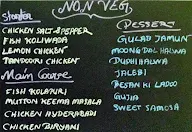 NON VEG
Starter
CHICKEN SALT & PEPPER
FISH KOLIWADA
LEMON CHICKEN
TANDOORI CHICKEN
Main Course
FISH KOLAPURI
MUTTON KEEMA MASALA
CHICKEN HYDERABADI
CHICKEN BIRYANI
DESSERT
GULAB JAMUN
MOONG DAL HALWA
DUDHI HALWA
JALEBI
BESAN KI LADOO
GUJIA
SWEET SAMOSA